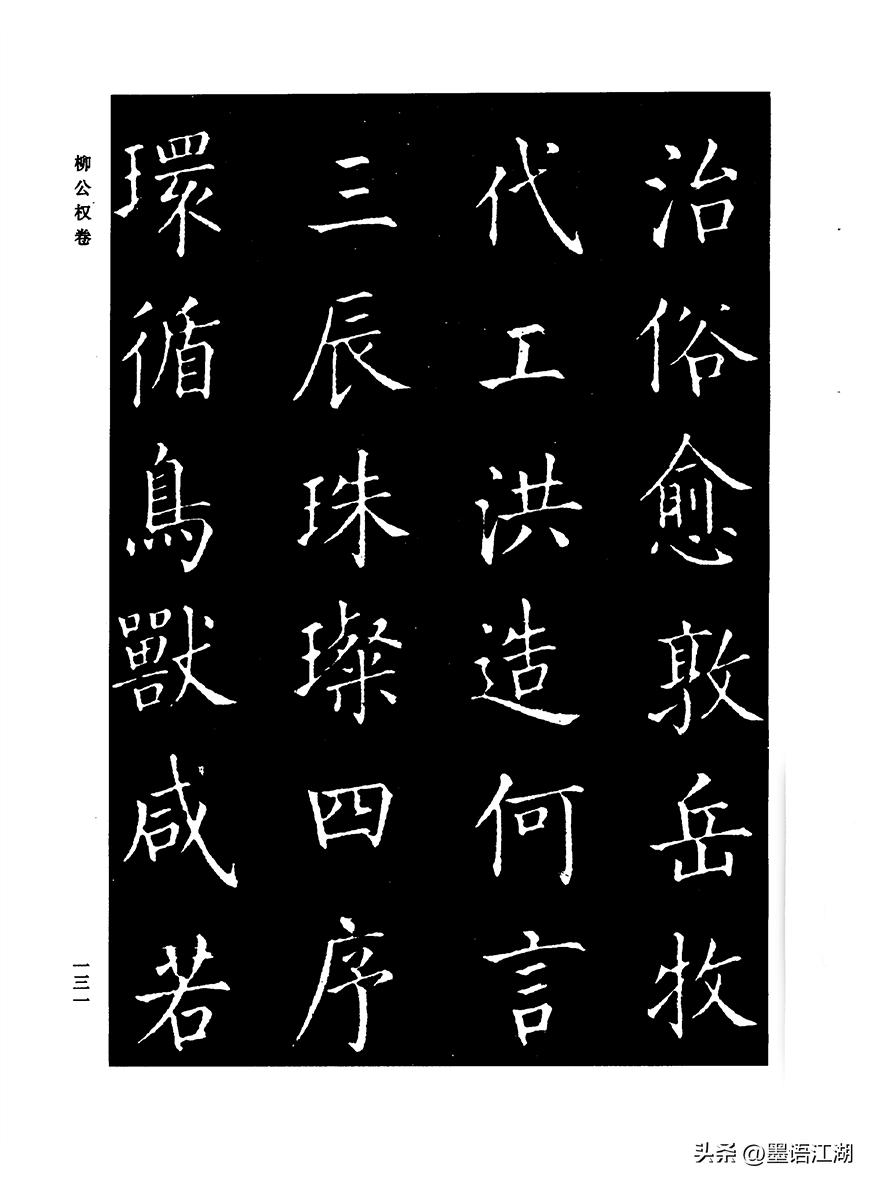 治俗愈敦岳牧
代工洪造何言
三辰珠璨四序
環循鳥獸咸若
柳公权卷
一三一
头条 @墨语江湖